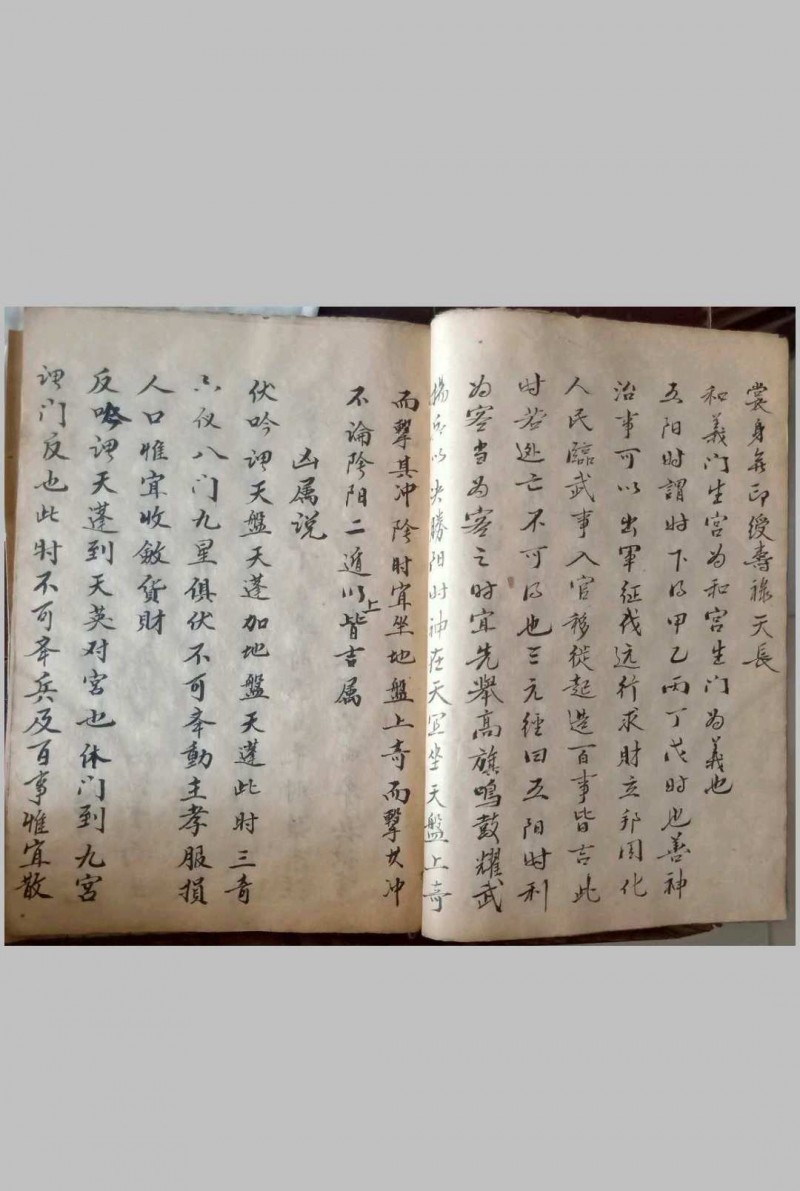 裳身無印绶壽祿天長
和義门生宫为和宫生门为義也
五阳时謂时下得甲乙丙丁戊时也善神
治事可以出軍征伐远行求財立邦国化
人民臨武事入官移徙起造百事皆吉此
时若逃亡不可得也三元经曰五阳时利
为客当为客之时宜先舉高旗鳴鼓耀武
揚兵以决勝阳时神在天宜坐天盤上奇
而擊其冲陰时宜坐地盤上奇而擊其冲
不論陰阳二遁以上皆吉属
凶属说
伏吟谓天盤天蓬加地盤天蓬此时三奇
六仪八门九星俱伏不可举動主孝服損
人口惟宜收斂貨財
反吟谓天蓬到天英对宫也休门到九宫
谓门反也此时不可举兵及百事惟宜散